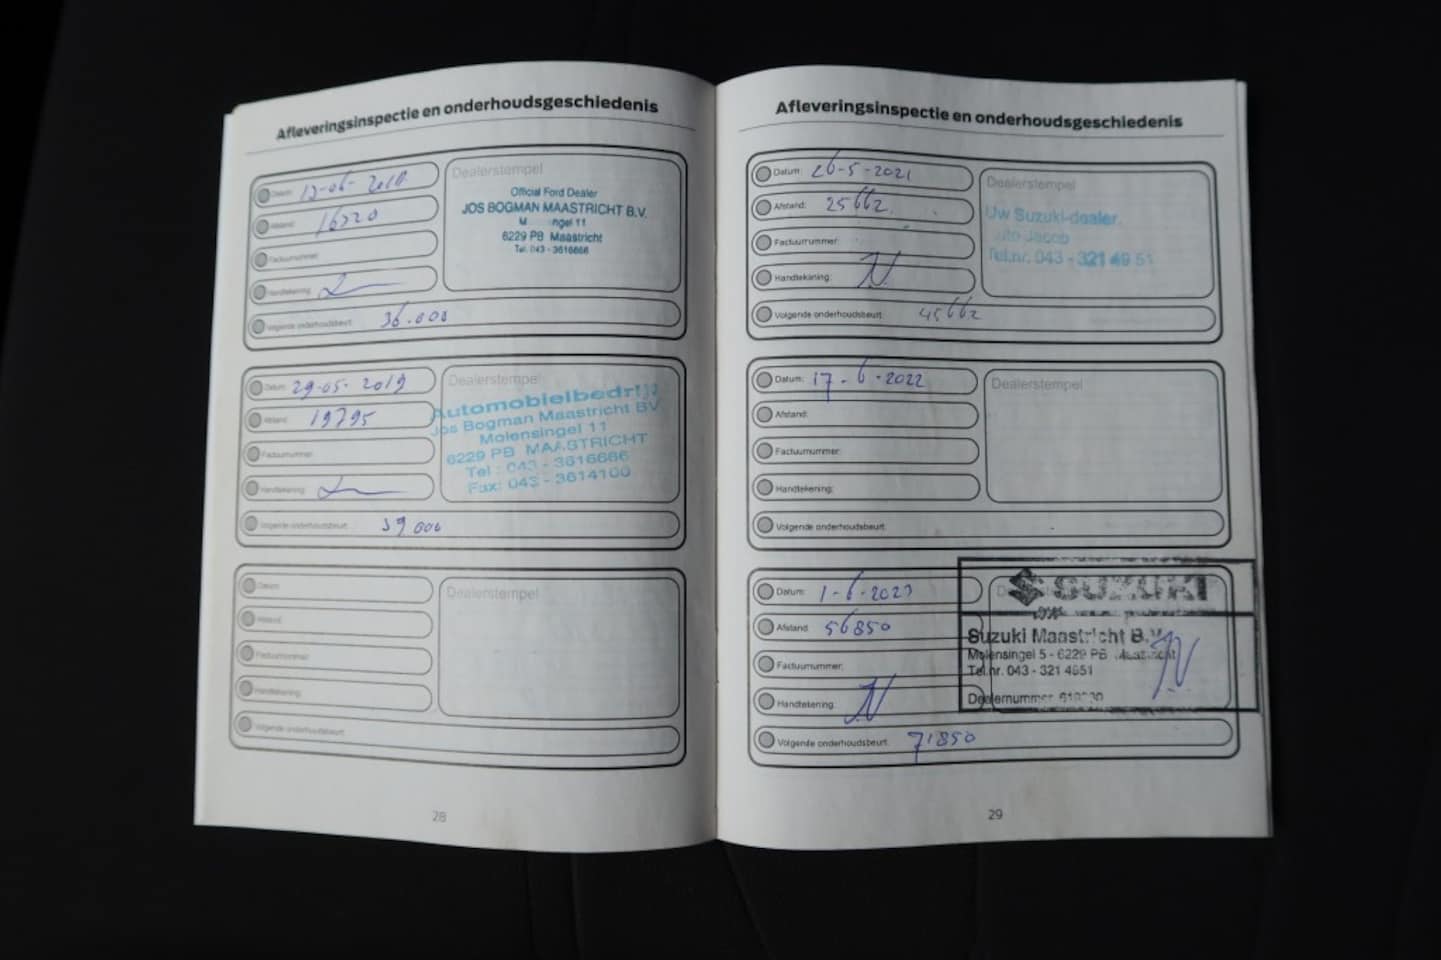 Afleveringsinspectie en onderhoudsgeschiedenis
Datum: 13-06-2018
Afstand: 16320
Factuurnummer:
Handtekening:
Volgende onderhoudsbeurt: 36.000
Dealerstempel
Official Ford Dealer
JOS BOGMAN MAASTRICHT B.V.
ngel 11
6229 PB Maastricht
Tel. 043 - 3616666
Datum: 29-05-2019
Afstand: 19795
Factuurnummer:
Handtekening:
Volgende onderhoudsbeurt: 39000
Dealerstempel
Automobielbedrijf
Jos Bogman Maastricht BV
Molensingel 11
6229 PB MAASTRICHT
Tel : 043 - 3616666
Fax: 043 - 3614100
Datum:
Afstand:
Factuurnummer:
Handtekening:
Volgende onderhoudsbeurt:
Dealerstempel
28
Afleveringsinspectie en onderhoudsgeschiedenis
Datum: 26-5-2021
Afstand: 25662
Factuurnummer:
Handtekening:
Volgende onderhoudsbeurt: 45662
Dealerstempel
Uw Suzuki-dealer.
Jacob
Tel.nr. 043 - 321 49 51
Datum: 17-6-2022
Afstand:
Factuurnummer:
Handtekening:
Volgende onderhoudsbeurt:
Dealerstempel
Datum: 1-6-2023
Afstand: 56850
Factuurnummer:
Handtekening:
Volgende onderhoudsbeurt: 71850
SUZUKI
Suzuki Maastricht B.V.
Molensingel 5 - 6229 PB Maastricht
Tel.nr. 043 - 321 4951
Dealernummer
29